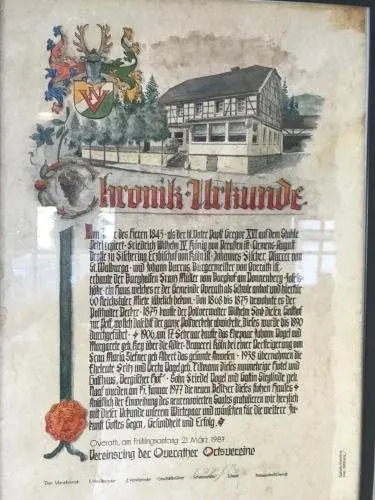 Chronik-Urkunde
Im Jahre des Herrn 1843 - als der hl. Vater Papst Gregor XVI auf dem Stuhle
Petri regiert - Friedrich Wilhelm IV. König von Preußen ist - Clemens August
Droste zu Vischering Erzbischof von Köln ist - Johannes Fischer, Pfarrer von
St. Walburga - und Johann Bürgermeister von Overath ist,
erbaute der Burghafen Franz Müller vom Burghof am
ein Haus, welches er der Gemeinde Overath als Schule anbot und hierfür
60 Reichstaler Miete jährlich bekam. Von 1868 bis 1875 bewohnte es der
Posthalter 1875 kaufte der Postverwalter Wilhelm diesen Gasthof
zur Post, wo sich daselbst der ganze Postverkehr abwickelte, dieses wurde bis 1890
durchgeführt - 1906, am 17. Februar kaufte das Ehepaar Johann Vogel und
Margarete geb. über die Adler-Brauerei Köln bei einer Versteigerung von
Frau Maria geb. Albert das gesamte Anwesen - 1938 übernahmen die
Eheleute Fritz und Berta Vogel geb. Tillmann dieses nunmehrige Hotel und
Gasthaus "Bergischer Hof" - Sohn Friedel Vogel und Gattin Sieglinde geb.
Naaf wurden am 15. Januar 1977 die neuen Besitzer dieses hohen Hauses
Anläßlich der Einweihung des neurenovierten Saales gratulieren wir herzlich
mit dieser Urkunde unserem Wirtepaar und wünschen für die weitere Zu-
kunft Gottes Segen, Gesundheit und Erfolg.
Overath, am Frühlingsanfang 21. März 1987
Vereinsring der Overather Ortsvereine
Der Vorstand: 1. Vorsitzender 2. Vorsitzender Geschäftsführer